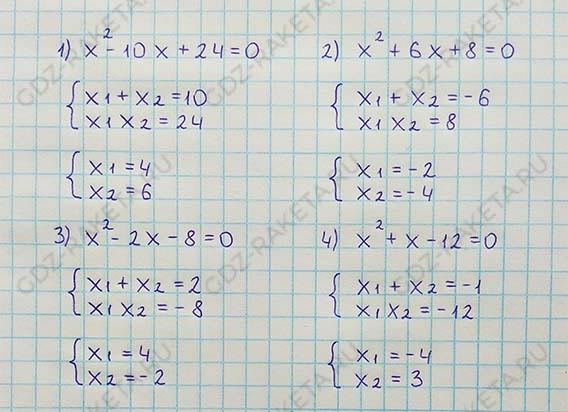 1) x² - 10x + 24 = 0
{ x1 + x2 = 10
x1 x2 = 24
{ x1 = 4
x2 = 6
2) x² + 6x + 8 = 0
{ x1 + x2 = -6
x1 x2 = 8
{ x1 = -2
x2 = -4
3) x² - 2x - 8 = 0
{ x1 + x2 = 2
x1 x2 = -8
{ x1 = 4
x2 = -2
4) x² + x - 12 = 0
{ x1 + x2 = -1
x1 x2 = -12
{ x1 = -4
x2 = 3
GDZ-RAKETA.RU